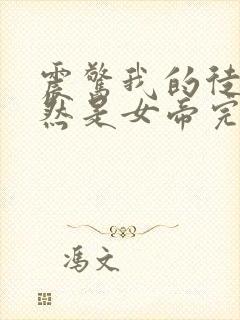 震惊我的徒
然是女帝完
冯文